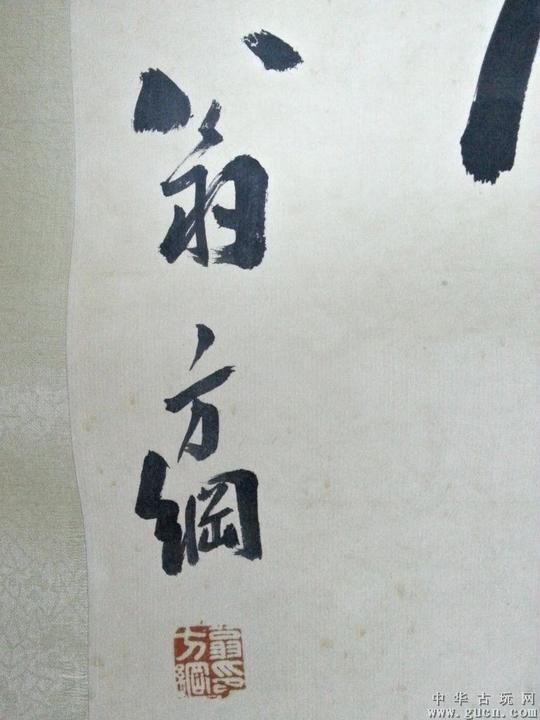 翁方綱
翁印
方綱
中华古玩网
www.gucn.com